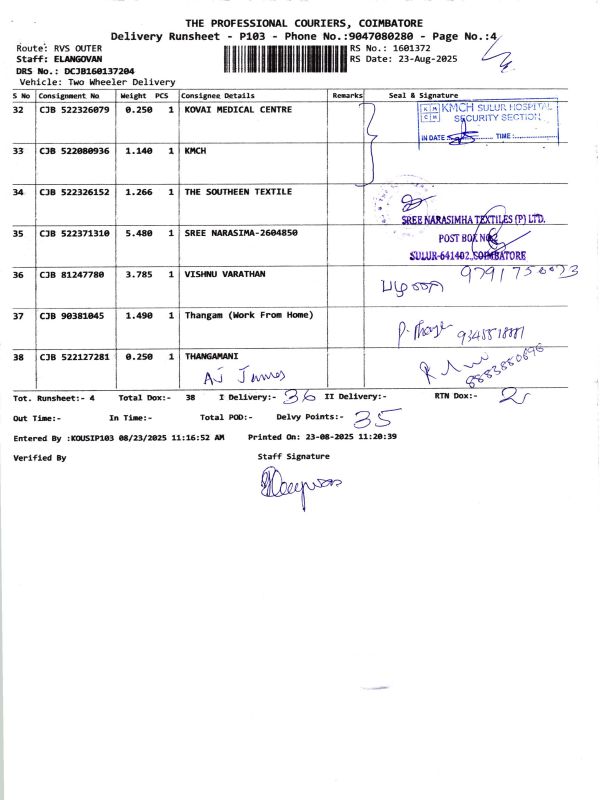 THE PROFESSIONAL COURIERS, COIMBATORE
Delivery Runsheet - P103 - Phone No.:9047080280 - Page No.:4
Route: RVS OUTER RS No.: 1601372
Staff: ELANGOVAN RS Date: 23-Aug-2025
DRS No.: DCJB160137204
Vehicle: Two Wheeler Delivery
S No Consignment No Weight PCS Consignee Details Remarks Seal & Signature
32 CJB 522326079 0.250 1 KOVAI MEDICAL CENTRE
KMCH SULUR HOSPITAL
SECURITY SECTION
IN DATE: TIME:
33 CJB 522080936 1.140 1 KMCH
34 CJB 522326152 1.266 1 THE SOUTHEEN TEXTILE
SREE NARASIMHA TEXTILES (P) LTD.
35 CJB 522371310 5.480 1 SREE NARASIMA-2604850
POST BOX NO
SULUR-641402, COIMBATORE
36 CJB 81247780 3.785 1 VISHNU VARATHAN
9791750073
37 CJB 90381045 1.490 1 Thangam (Work From Home)
38 CJB 522127281 0.250 1 THANGAMANI
James
Tot. Runsheet:- 4 Total Dox:- 38 I Delivery:- 36 II Delivery:- RTN Dox:- 2
Out Time:- In Time:- Total POD:- Delvy Points:- 35
Entered By :KOUSIP103 08/23/2025 11:16:52 AM Printed On: 23-08-2025 11:20:39
Verified By Staff Signature